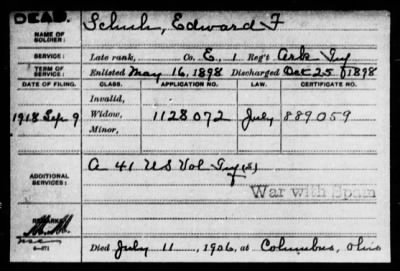 DEAD.
NAME OF SOLDIER: Schuh, Edward F
SERVICE: Late rank, Co. E, 1 Reg't Ark Inf
TERM OF SERVICE: Enlisted May 16, 1898 Discharged Oct 25, 1898
DATE OF FILING. CLASS. APPLICATION NO. LAW. CERTIFICATE NO.
Invalid,
1918 Sep 9 Widow, 1128072 July 889059
Minor,
ADDITIONAL SERVICES: A 41 US Vol Inf (S)
War with Spain
REMARKS:
Died July 11, 1906, at Columbus, Ohio